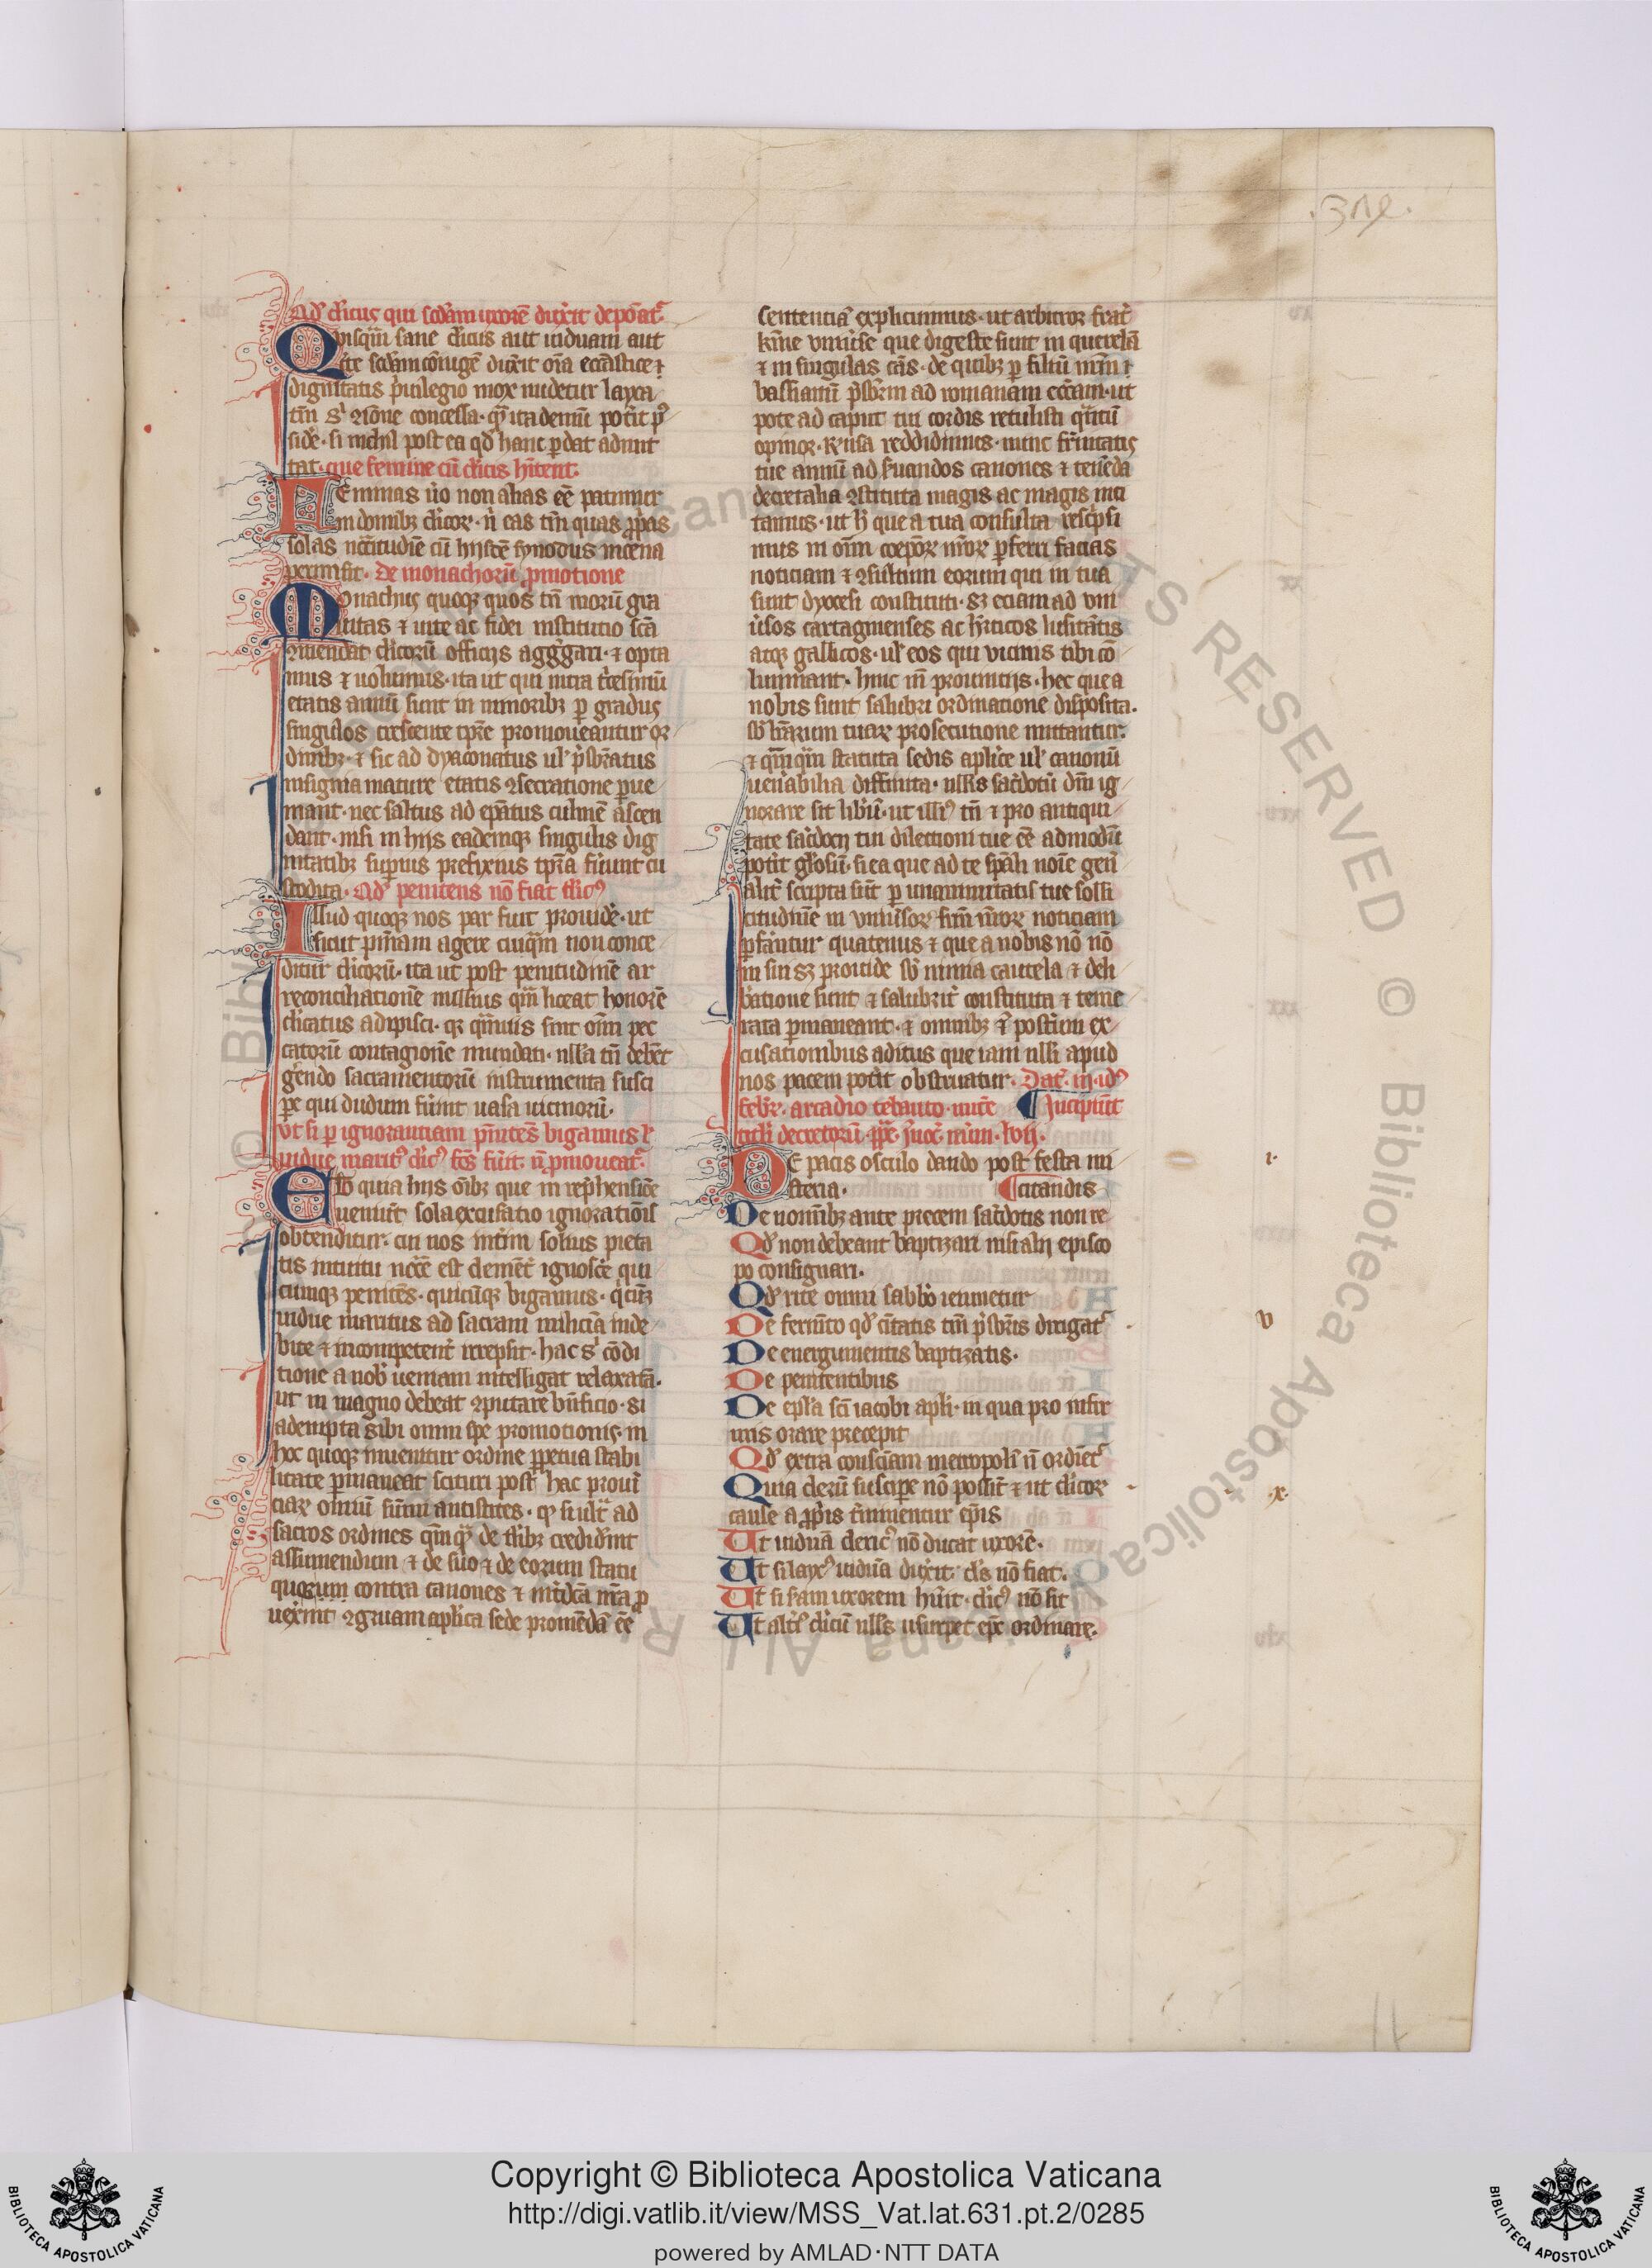 .319.
Qd' cl'icus qui scd'am uxorē duxit deponat'
Quisq̄m sane cl'icus aut uiduam aut
c̄te scd'am ɔiugē duxit oīa eccl'astice
dignitatis p'uilegio mox nudetur layca
tm̄ s' ɔıōne concessa. q̄ ita demū pot'it
sidē. si nichil postea qd' hanc p̄dat admit
tat. que femine cū cl'icis h'itent.
Feminas u'o non alias eē patimur
in domibꝫ cl'icoꝝ. n' eas tm̄ quas ꝓpt'
solas nccītudīe cū hiisdē synodus nicena
permisit. De monachorū ꝓmotione
Monachus quoqꝫ quos tn̄ morū gra
uitas et uite ac fidei institutio sc̄a
ɔmendat cl'icorū officiis aggregari. et opta
mus et uolumus. ita ut qui intra t'cesimū
etatis annū sunt in minoribꝫ p gradus
singulos crescente tp̄re promoueantur or
dinibꝫ. et sic ad dyaconatus ul' p'sbr̄atus
insignia mature etatis ɔsecratione p̄ue
niant. nec saltus ad ep̄atus culmē ascen
dant. nisi in hiis eademqꝫ singulis dig
nitatibꝫ sup̄ius prefixis tp̄ra fu'int cu
stodita. Qd' penitens nō fiat cl'ic9
Illud quoqꝫ nos par fuit prouidē. ut
sicut pn̄iam agere cuiq̄m non conce
ditur cl'icorū. ita ut post penitudinē ac
reconciliationē nullius q̄m liceat honorē
cl'icatus adipisci. qꝫ q̄muis sint oīm pec
catorū contagione mundati. nlla tn̄ debēt
gerendo sacramentorū instrumenta susci
pe qui dudum fu'int uasa uiciorū.
Ut si p ignorantiam pn̄itēs bigamus ul'
uidue marit9 cl'ic9 fc̄s fu'it. n̄ ꝓmoueat'.
Et quia hiis oībꝫ que in rep'hensiōe
uenīut sola excusatio ignorationis
obtenditur. cui nos int'im solius pieta
tis intuitu nc̄cē est clemēt' ignoscē qui
cumqꝫ penitēs. quicūqꝫ bigamus. q'cūqꝫ
uidue maritus ad sacram miliciā inde
bite et incompetent' irrepsit. hac s' cōdi
tione a nob' ueniam intelligat relaxatā.
ut in magno debeat ɔputare bn̄ficio. si
adempta sibi omni spe promotionis. in
hoc quoqꝫ inuenitur ordine ppetua stabi
litate p̄maneat scituri post hac prouī
ciaꝝ omniū sūmi antistites. qꝫ si ult' ad
sacros ordines q̄mq̄ de tlibꝫ credid'int
assumendum et de suo et de eorum statu
quorum contra canones et int'dc̄a nr̄a ꝓ
uex'int ɔgruam aplica sede promēdā eē
sententiā explicuimus. ut arbitror frat'
km̄e vniu'se que digeste sunt in querelā
et in singulas cās. de quibꝫ p filiū nr̄m
bassianū p̄sbr̄m ad romanam ecc̄am. ut
pote ad caput tui cordis retulisti q̄ntū
opinor. r'nsa reddidimus. nunc fr̄nitatis
tue annū ad s'uandos canones et tenēda
decretalia ɔstituta magis ac magis inci
tamus. ut h' que a tua consulta resc'psi
mus in oīm coep̄oꝝ nr̄oꝝ pferri facias
noticiam et ɔsultum eorum qui in tua
sunt dyocesi constituti. sꝫ eciam ad vni
u'sos cartaginenses ac b'ticos lusitanis
atqꝫ gallicos. ul' eos qui uicinis tibi cō
liminant. hinc in̄ prouinciis. hec que a
nobis sunt salubri ordinatione disposita.
sb' lr̄arum tuaꝝ prosecutione mittantur.
et q̄mq̄m statuta sedis aplice ul' canonū
uen'abilia diffinita. nllis sac'dotū dn̄i ig
norare sit lib'ū. ut illi9 tn̄ et pro antiqui
tate sac'docij tui dilectioni tue eē admodū
pot'it gl'osū. si ea que ad te sp̄ali noīe gen'
alit' scripta sūt p unanimitatis tue solli
citudinē in vniu'soꝝ fr̄m nr̄oꝝ noticiam
pferantur quatenus et que a nobis nō nō
in sin sꝫ prouide sb' nimia cautela et deli
b'atione sunt et salubrit' constituta et teme
rata p̄maneant. et omnibꝫ ī post'um ex
cusationibus aditus que iam nlli apud
nos patem pot'it obstruatur. Dat'. iij. id9
febr'. arcadio et bauto. uirīs ¶ Incipiūt
tituli decretorū. pp̄e. Jnoc'. nūm. lvij.
De pacis osculo dando post festa mi
steria. ¶citandis
De nominibꝫ ante precem sac'dotis non re
Qd' non debeant baptizari nisi abij episco
po consignari.
Qd' rite omni sabbo ieiunetur
De fermēto qd' citatis tm̄ p'sbr̄is dirigat'
De energumenis baptizatis.
De penitentibus
De epl'a sci iacobi apli. in qua pro infir
mis orare precepit
Qd' extra consciam metropoli n̄ ordīet'
Quia clerū suscipe nō possit et ut cl'icoꝝ
cause a ꝓpiis t'minentur ep̄is
Ut uiduā cleric9 nō ducat uxorē.
Ut si layc9 uiduā duxit cl's nō fiat.
Ut si scd'am uxorem hūit. cl'ic9 nō fit
Ut alt'i9 cl'icū nlls usurpet ep̄c ordinare.
i.
v
.x.
Copyright © Biblioteca Apostolica Vaticana
http://digi.vatlib.it/view/MSS_Vat.lat.631.pt.2/0285
powered by AMLAD·NTT DATA
BIBLIOTECA APOSTOLICA VATICANA
BIBLIOTECA APOSTOLICA VATICANA